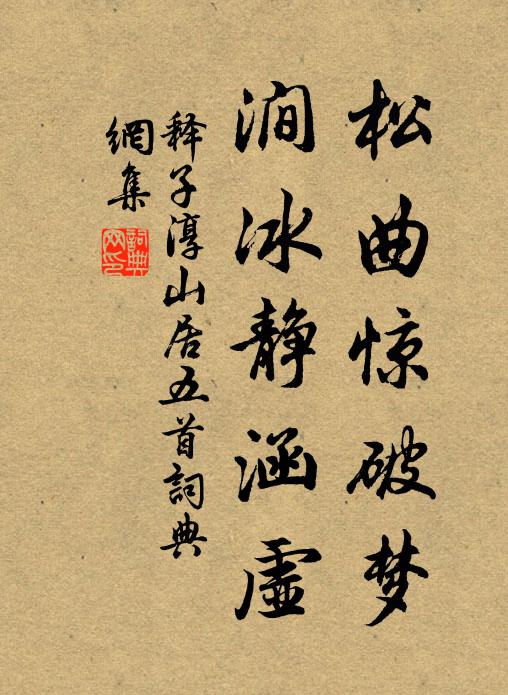 松曲惊破梦
涧冰静涵虚
释子淳山居五首詞典
網集
詞典
网印